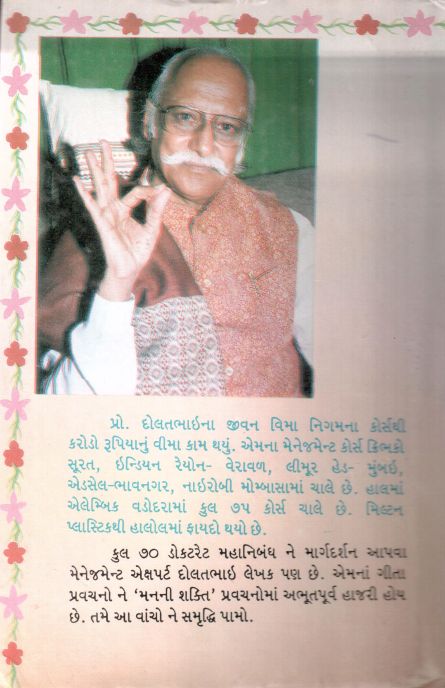 પ્રો. દોલતભાઇના જીવન વિમા નિગમના કોર્સથી
કરોડો રૂપિયાનું વીમા કામ થયું. એમના મેનેજમેન્ટ કોર્સ ક્રિભકો
સૂરત, ઇન્ડિયન રેયોન- વેરાવળ, લીમૂર હેડ- મુંબઇ,
એડસેલ-ભાવનગર, નાઇરોબી મોમ્બાસામાં ચાલે છે. હાલમાં
એલેમ્બિક વડોદરામાં કુલ ૭૫ કોર્સ ચાલે છે. મિલ્ટન
પ્લાસ્ટિકથી હાલોલમાં ફાયદો થયો છે.
કુલ ૭૦ ડોકટરેટ મહાનિબંધ ને માર્ગદર્શન આપવા
મેનેજમેન્ટ એક્ષપર્ટ દોલતભાઇ લેખક પણ છે. એમનાં ગીતા
પ્રવચનો ને ‘મનની શક્તિ’ પ્રવચનોમાં અભૂતપૂર્વ હાજરી હોય
છે. તમે આ વાંચો ને સમૃદ્ધિ પામો.